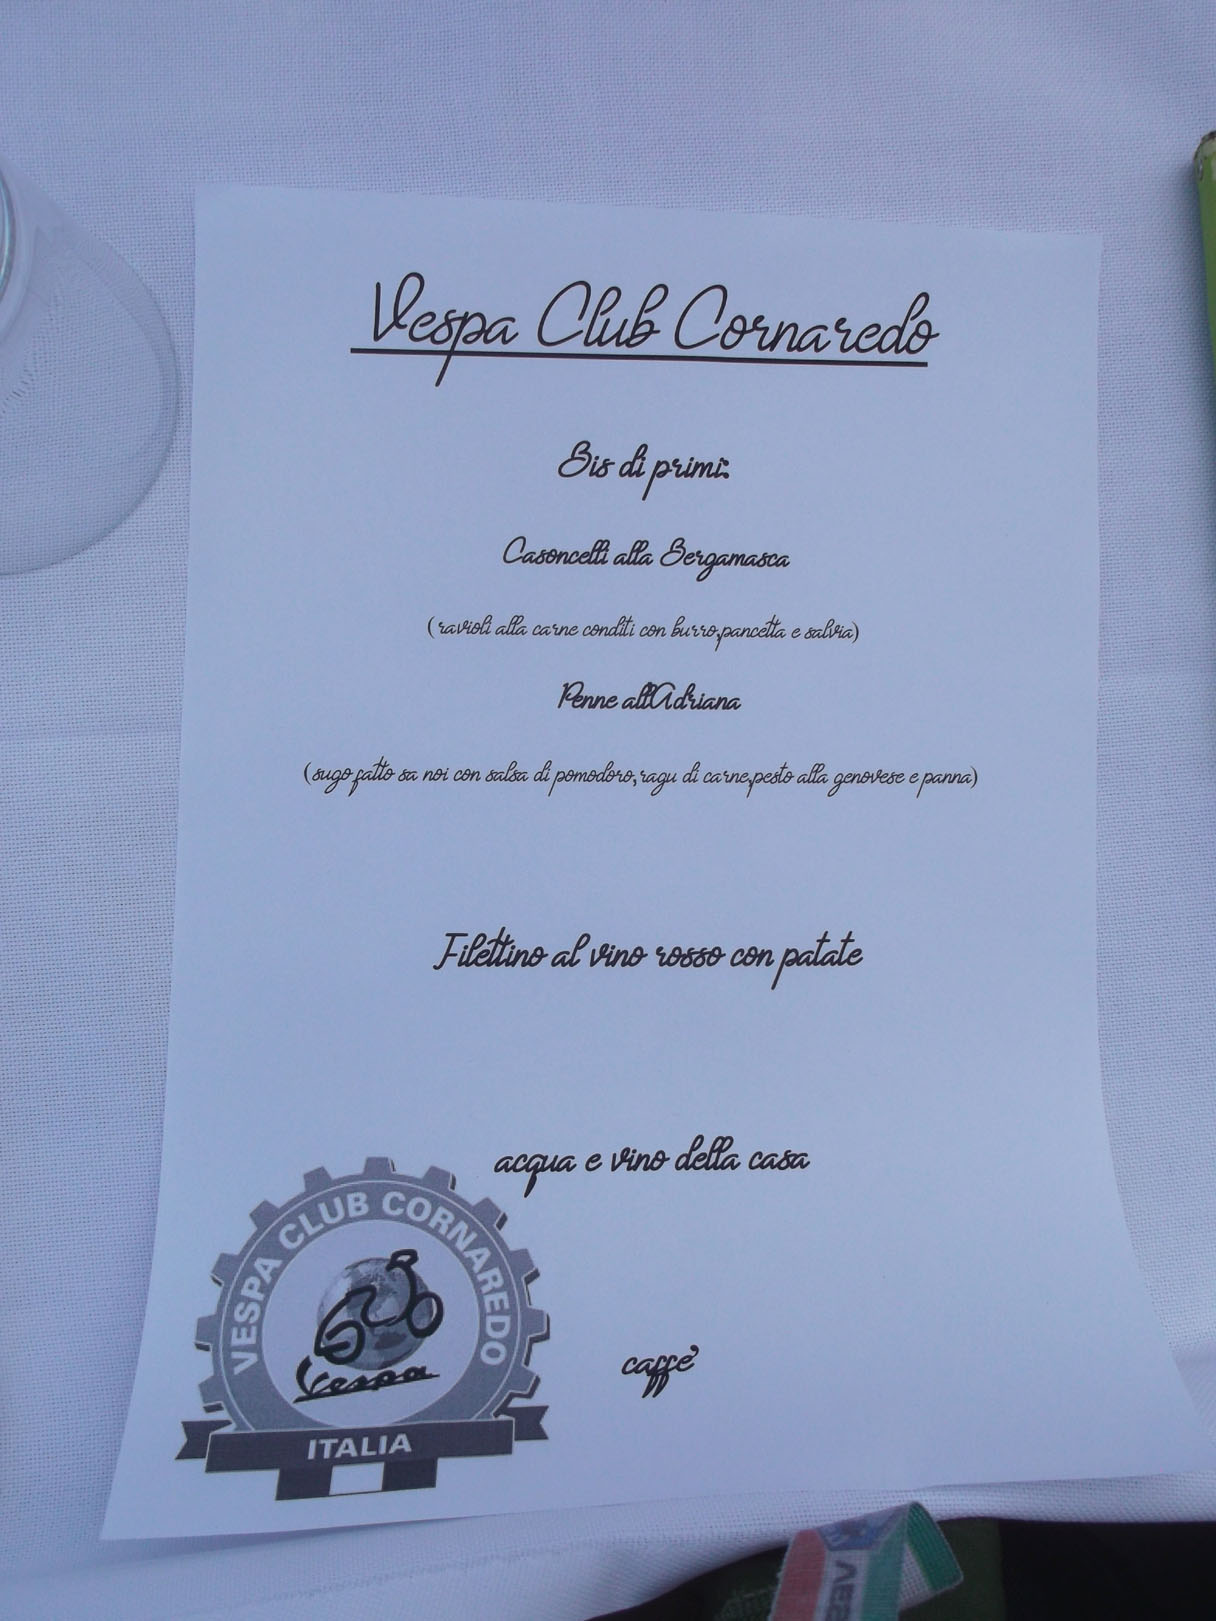 Vespa Club Cornaredo
Bis di primi:
Casoncelli alla Bergamasca
(ravioli alla carne conditi con burro,pancetta e salvia)
Penne all'Adriana
(sugo fatto sa noi con salsa di pomodoro,ragu di carne,pesto alla genovese e panna)
Filettino al vino rosso con patate
acqua e vino della casa
caffe'
VESPA CLUB CORNAREDO
Vespa
ITALIA